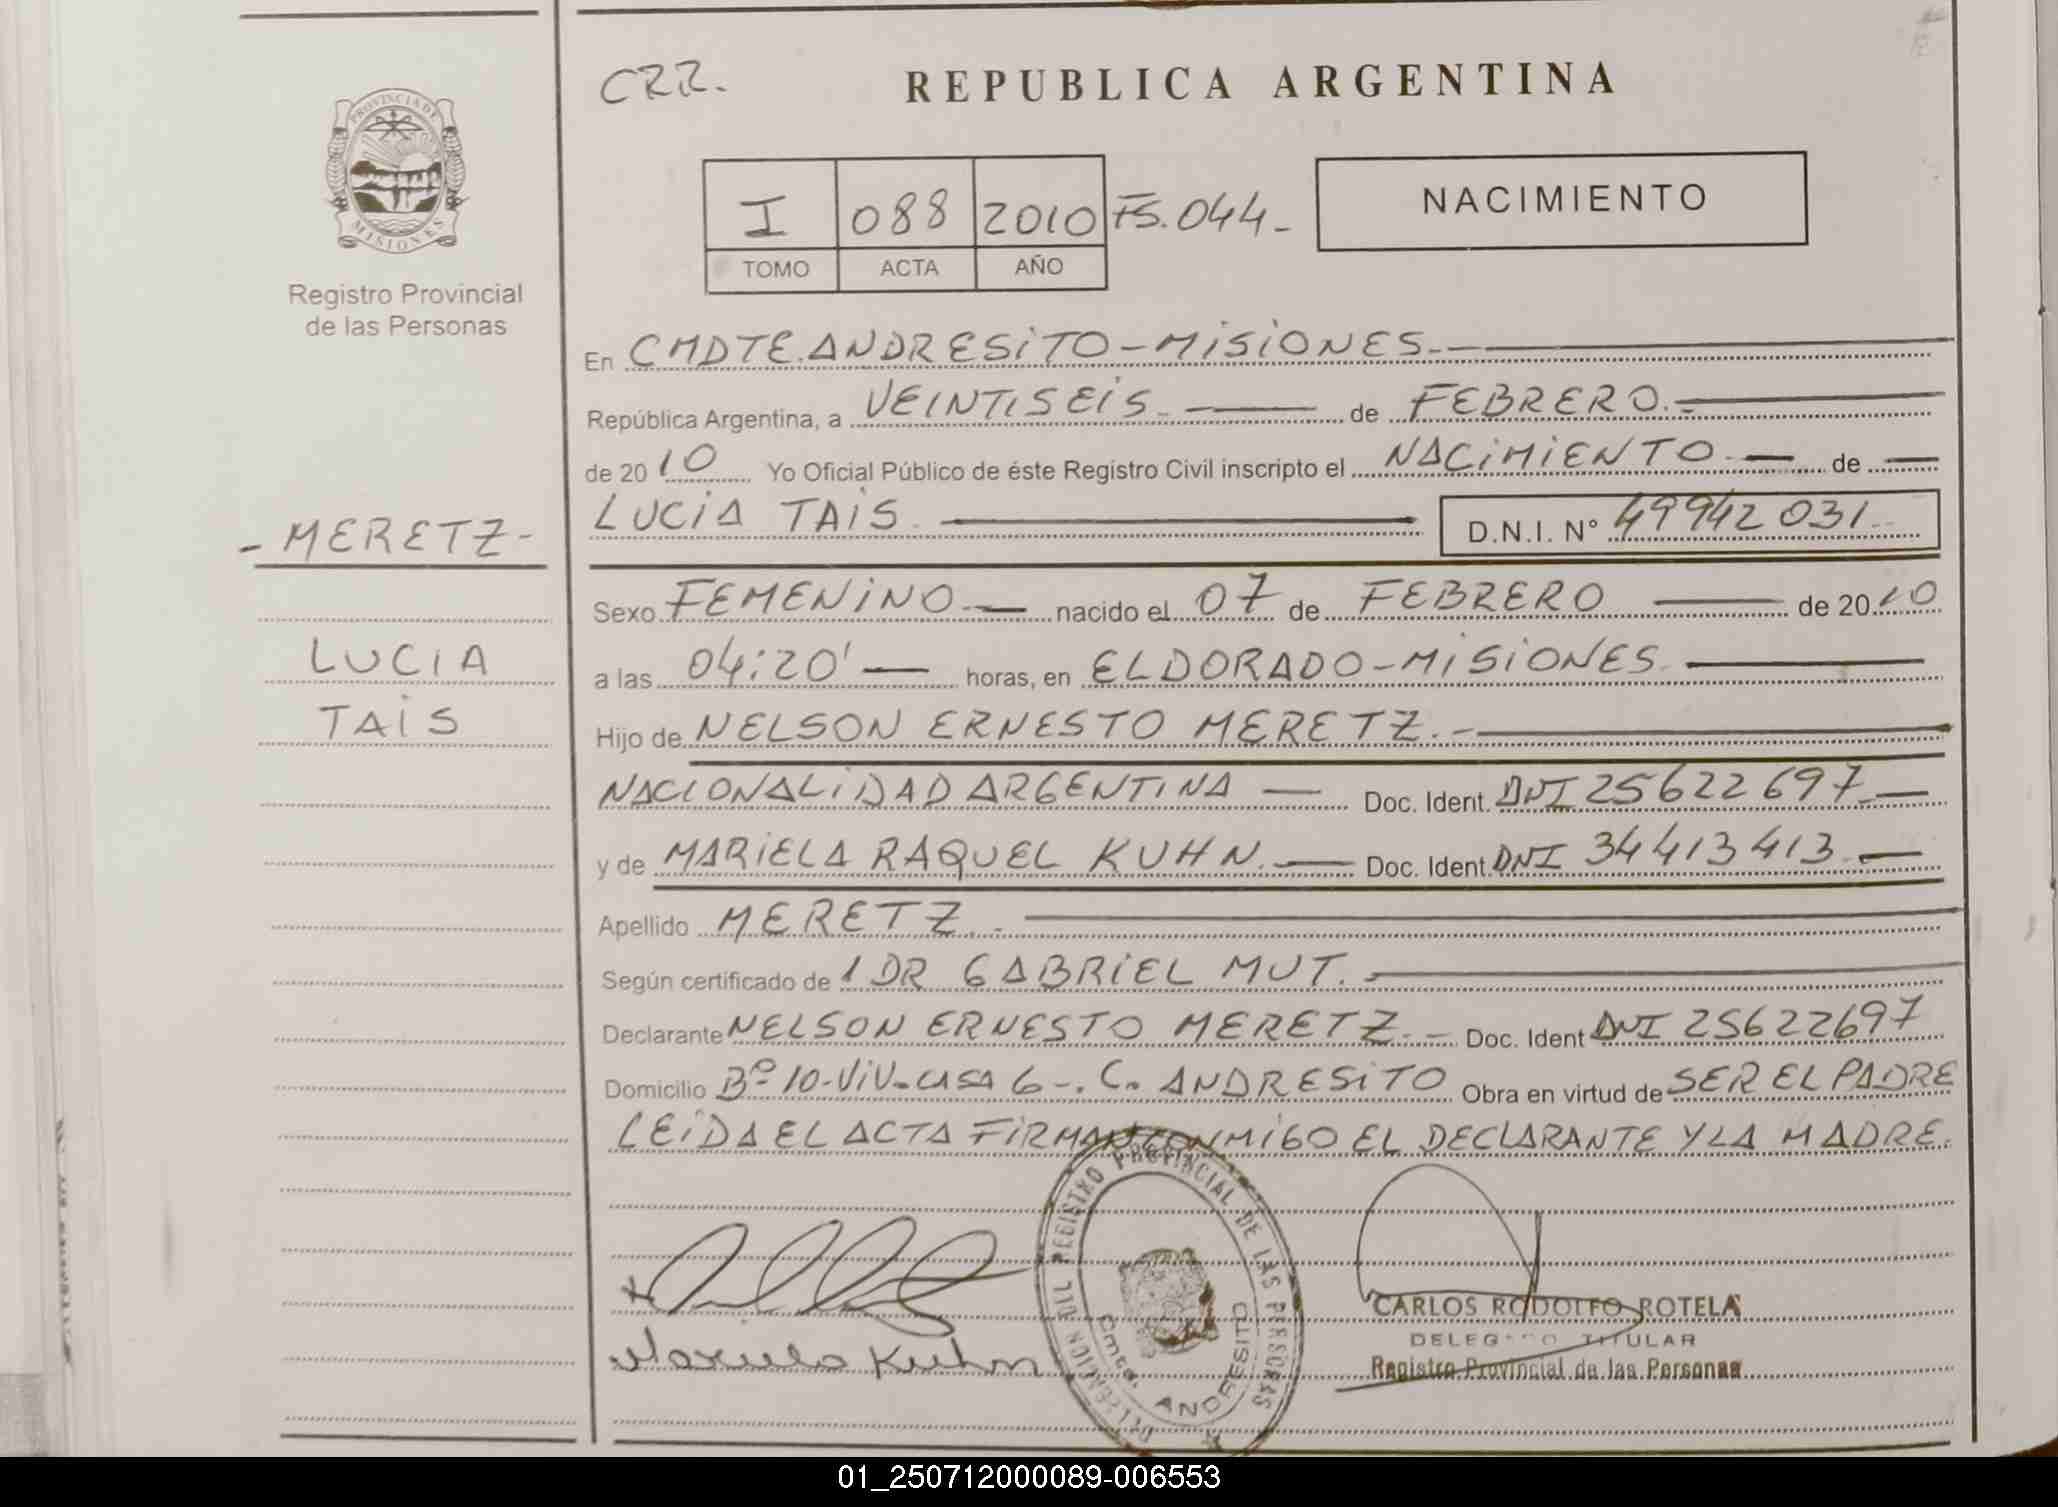 CRR.
REPUBLICA ARGENTINA
PROVINCIA DE
MISIONES
Registro Provincial
de las Personas
I 088 2010 FS.044-
TOMO ACTA AÑO
NACIMIENTO
En CMDTE.ANDRESITO-MISIONES.-
República Argentina, a VEINTISEIS. de FEBRERO.-
de 2010 Yo Oficial Público de éste Registro Civil inscripto el NACIMIENTO - de -
LUCIA TAIS. D.N.I. Nº 49942031.-
-MERETZ-
LUCIA
TAIS
Sexo FEMENINO.- nacido el 07 de FEBRERO de 2010
a las 04:20' horas, en ELDORADO-MISIONES.
Hijo de NELSON ERNESTO MERETZ.-
NACIONALIDAD ARGENTINA - Doc. Ident. DNI 25622697.-
y de MARIELA RAQUEL KUHN.- Doc. Ident. DNI 34413413.-
Apellido MERETZ.-
Según certificado de 1 DR GABRIEL MUT.-
Declarante NELSON ERNESTO MERETZ.- Doc. Ident DNI 25622697
Domicilio Bº 10-VIV-CASA 6-. C. ANDRESITO Obra en virtud de SER EL PADRE
LEIDA EL ACTA FIRMAN CONMIGO EL DECLARANTE Y LA MADRE.
DELEGACION DEL REGISTRO PROVINCIAL DE LAS PERSONAS
Cmte. ANDRESITO
Mariela Kuhn
CARLOS RODOLFO ROTELA
DELEGADO TITULAR
Registro Provincial de las Personas
01_250712000089-006553